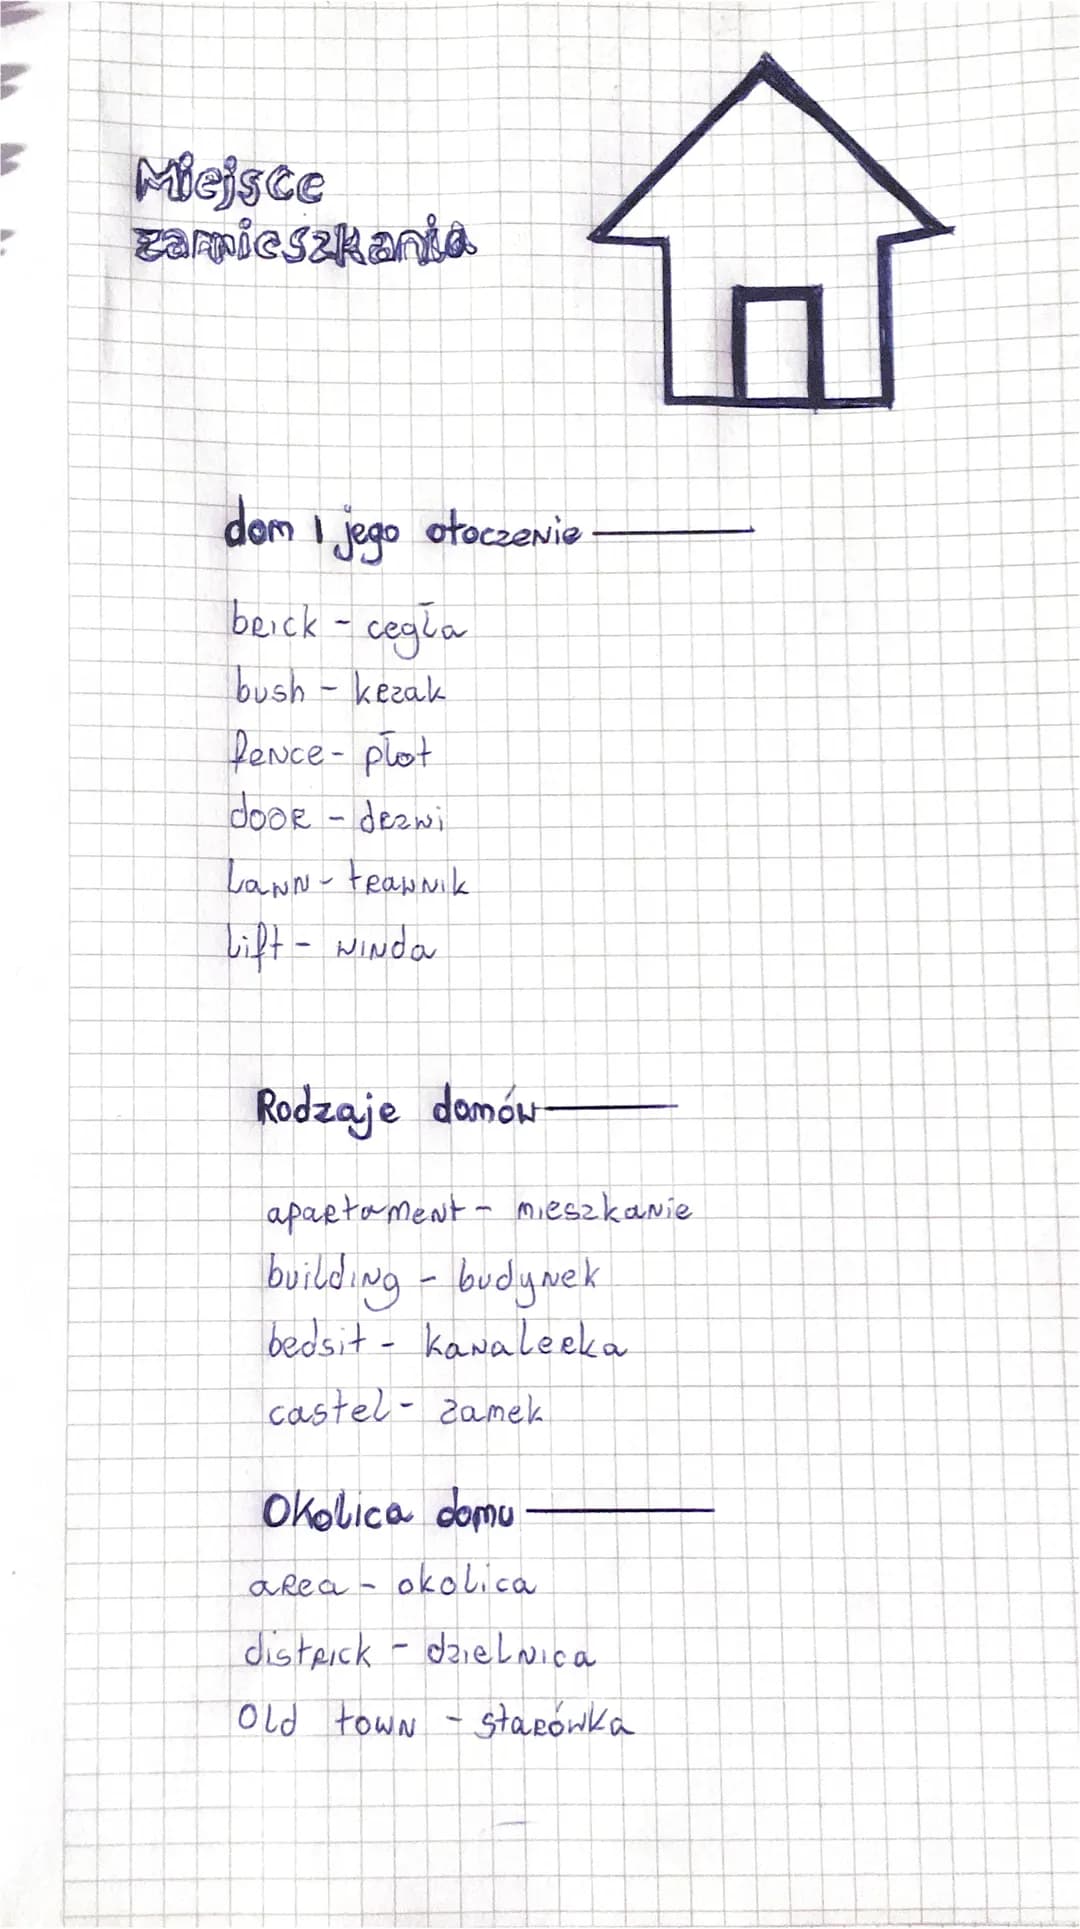 Miejsce
zamieszkania
dom i jego otoczenie
brick - cegła
bush - krzak
fence - płot
door - drzwi
Lawn - trawnik
Lift - winda
Rodzaje domów
apartament - mieszkanie
building - budynek
bedsit - kawalerka
castel - zamek
Okolica domu
area - okolica
districk - dzielnica
Old town - starówka